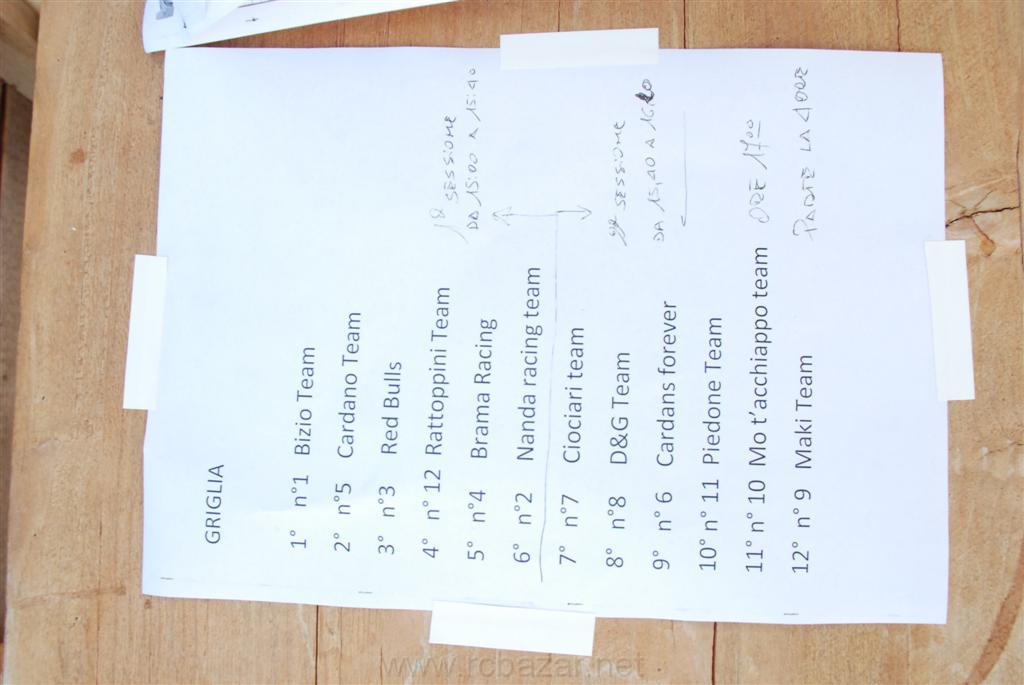 GRIGLIA
1° n°1 Bizio Team
2° n°5 Cardano Team
3° n°3 Red Bulls
4° n° 12 Rattoppini Team
5° n°4 Brama Racing
6° n°2 Nanda racing team
7° n°7 Ciociari team
8° n°8 D&G Team
9° n° 6 Cardans forever
10° n° 11 Piedone Team
11° n° 10 Mo t'acchiappo team
12° n° 9 Maki Team
1ª SESSIONE
DA 15:00 A 15:40
2ª SESSIONE
DA 15,40 A 16:20
ORE 17:00
PARTE LA 4 ORE
www.rcbazar.net